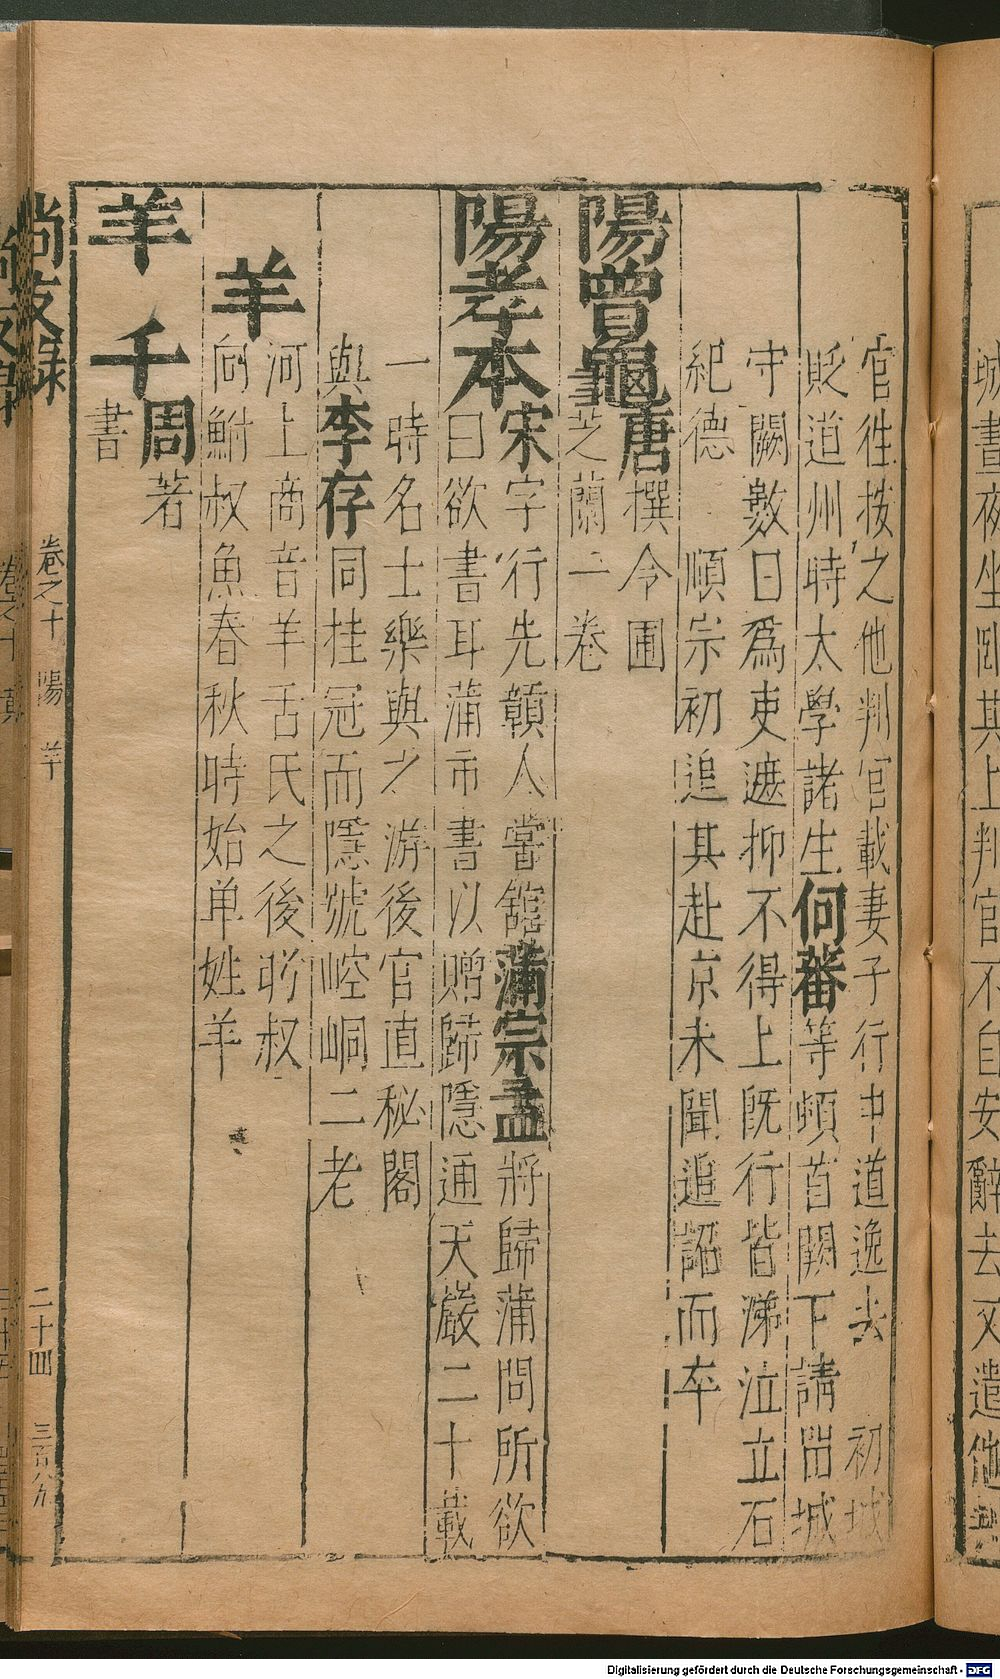 城晝夜坐臥其上判官不自安辭去又遣他
官往按之他判官載妻子行中道逸去　初城
貶道州時太學諸生何蕃等頓首闕下請留城
守闕數日為吏遮抑不得上既行皆涕泣立石
紀德　順宗初追其赴京未聞追詔而卒
陽曾龜唐撰令圃
芝蘭一卷
陽孝本宋字行先贛人嘗館蒲宗孟將歸蒲問所欲
曰欲書耳蒲市書以贈歸隱通天巖二十載
一時名士樂與之游後官直秘閣
與李存同挂冠而隱號崆峒二老
羊
河上商音羊舌氏之後肸叔
向鮒叔魚春秋時始单姓羊
羊千周著
書
尚友録　卷之十　陽　羊　二十四　三百六九
Digitalisierung gefördert durch die Deutsche Forschungsgemeinschaft - DFG